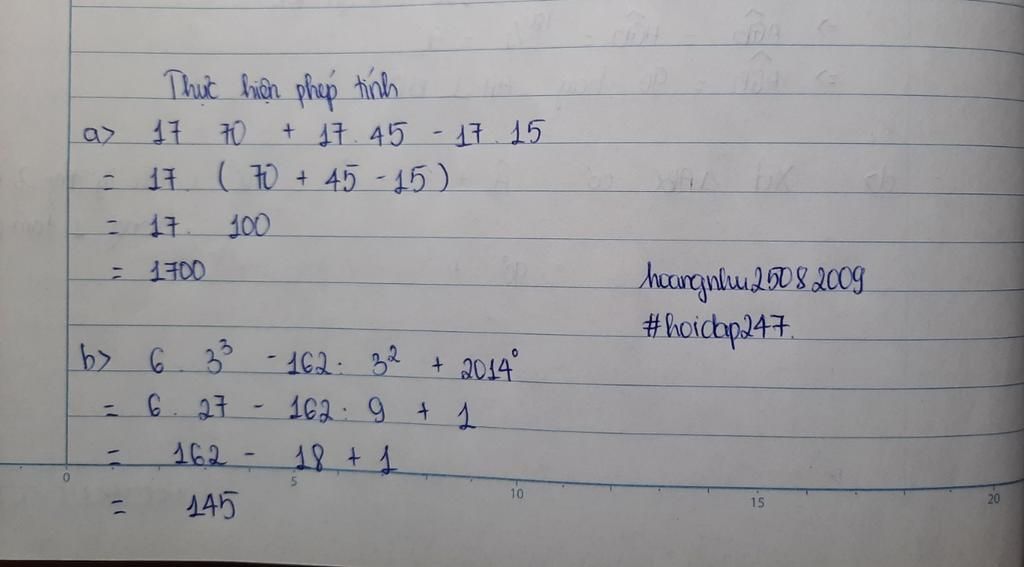 Thực hiện phép tính
a> 17 70 + 17. 45 - 17. 15
= 17. ( 70 + 45 - 15)
= 17. 100
= 1700
hoangnhu25082009
#hoidap247.
b> 6. 3³ - 162: 3² + 2014⁰
= 6. 27 - 162: 9 + 1
= 162 - 18 + 1
= 145
0 5 10 15 20